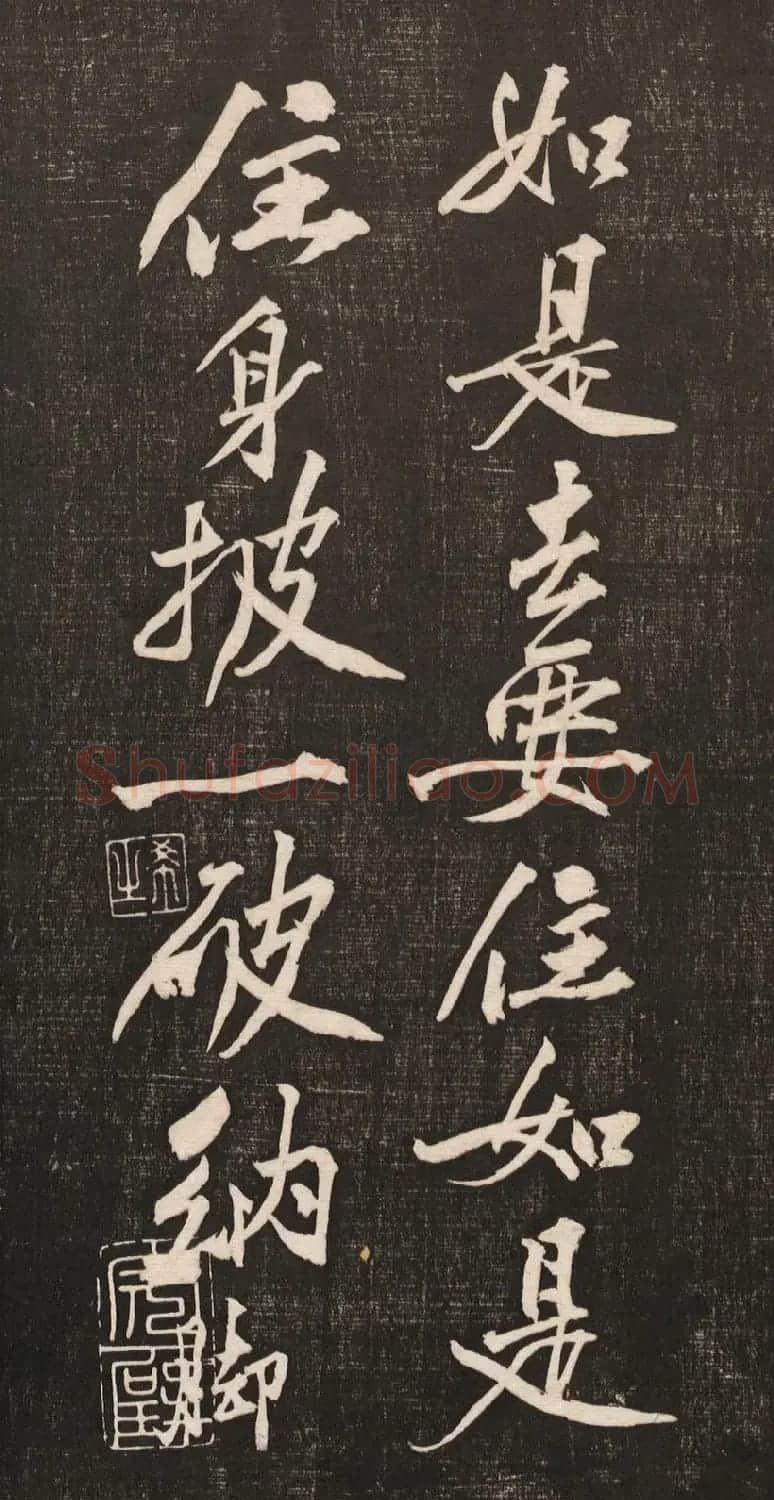 如是去要住如是
住身披一破衲脚
Shufaziliao.COM